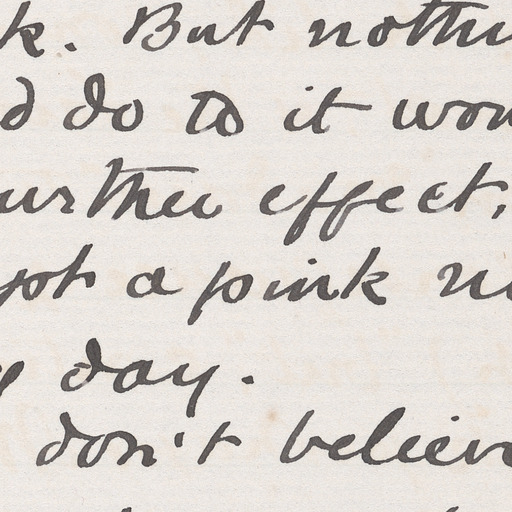 k. But nothi
d do to it wou
urther effect,
ept a pink n
y day.
don't believ